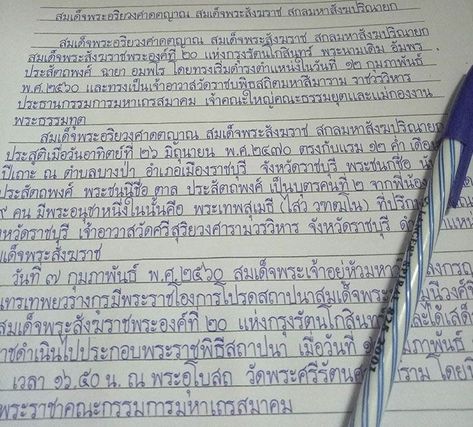 สมเด็จพระอริยวงศาคตญาณ สมเด็จพระสังฆราช สกลมหาสังฆปริณายก
สมเด็จพระอริยวงศาคตญาณ สมเด็จพระสังฆราช สกลมหาสังฆปริณายก
สมเด็จพระสังฆราชพระองค์ที่ ๒๐ แห่งกรุงรัตนโกสินทร์ พระนามเดิม อัมพร
ประสัตถพงศ์ ฉายา อมฺพโร โดยทรงเริ่มดำรงตำแหน่งในวันที่ ๑๒ กุมภาพันธ์
พ.ศ.๒๕๖๐ และทรงเป็นเจ้าอาวาสวัดราชบพิธสถิตมหาสีมาราม ราชวรวิหาร
ประธานกรรมการมหาเถรสมาคม เจ้าคณะใหญ่คณะธรรมยุตและแม่กองงาน
พระธรรมทูต
สมเด็จพระอริยวงศาคตญาณ สมเด็จพระสังฆราช สกลมหาสังฆปริณายก
ประสูติเมื่อวันอาทิตย์ที่ ๒๖ มิถุนายน พ.ศ.๒๔๗๐ ตรงกับแรม ๑๒ ค่ำ เดือน
ปีเถาะ ณ ตำบลบางป่า อำเภอเมืองราชบุรี จังหวัดราชบุรี พระชนกชื่อ นับ
ประสัตถพงศ์ พระชนนีชื่อ ตาล ประสัตถพงศ์ เป็นบุตรคนที่ ๒ จากพี่น้อง
๙ คน มีพระอนุชาหนึ่งในนั้นคือ พระเทพสุเมธี (ไสว วฑฺฒโน) ที่ปรึกษา
จังหวัดราชบุรี เจ้าอาวาสวัดศรีสุริยวงศารามวรวิหาร จังหวัดราชบุรี
สมเด็จพระสังฆราช
วันที่ ๗ กุมภาพันธ์ พ.ศ.๒๕๖๐ สมเด็จพระเจ้าอยู่หัวมหา ลงกรณ
นทรเทพยวรางกูรมีพระราชโองการโปรดสถาปนาสมเด็จพระ มุนีวงศ์
สมเด็จพระสังฆราชพระองค์ที่ ๒๐ แห่งกรุงรัตนโกสินท และได้เสด็จ
ราชดำเนินไปประกอบพระราชพิธีสถาปนา เมื่อวันที่ ๑ มภาพันธ์
เวลา ๑๖.๕๐ น. ณ พระอุโบสถ วัดพระศรีรัตน าราม โดย
พระราชาคณะกรรมการมหาเถรสมาคม